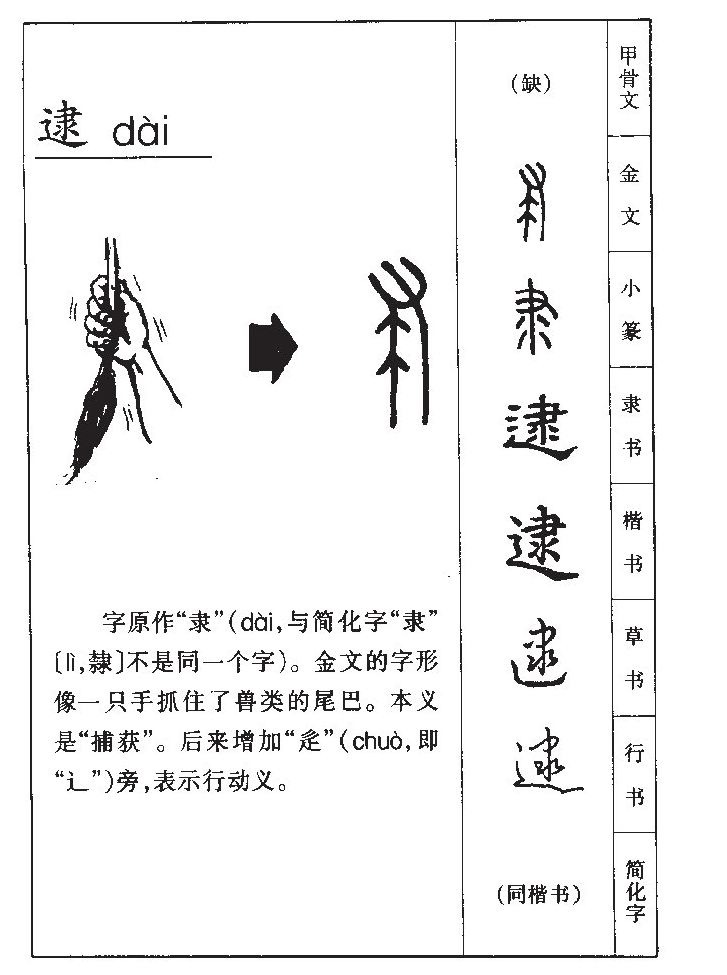 逮 dài
字原作“隶”(dài,与简化字“隶”
〔lì,隸〕不是同一个字)。金文的字形
像一只手抓住了兽类的尾巴。本义
是“捕获”。后来增加“辵”(chuò,即
“辶”)旁,表示行动义。
(缺)
甲骨文
金文
隶
小篆
隶
逮
隶书
逮
楷书
逮
草书
逮
行书
(同楷书)
简化字